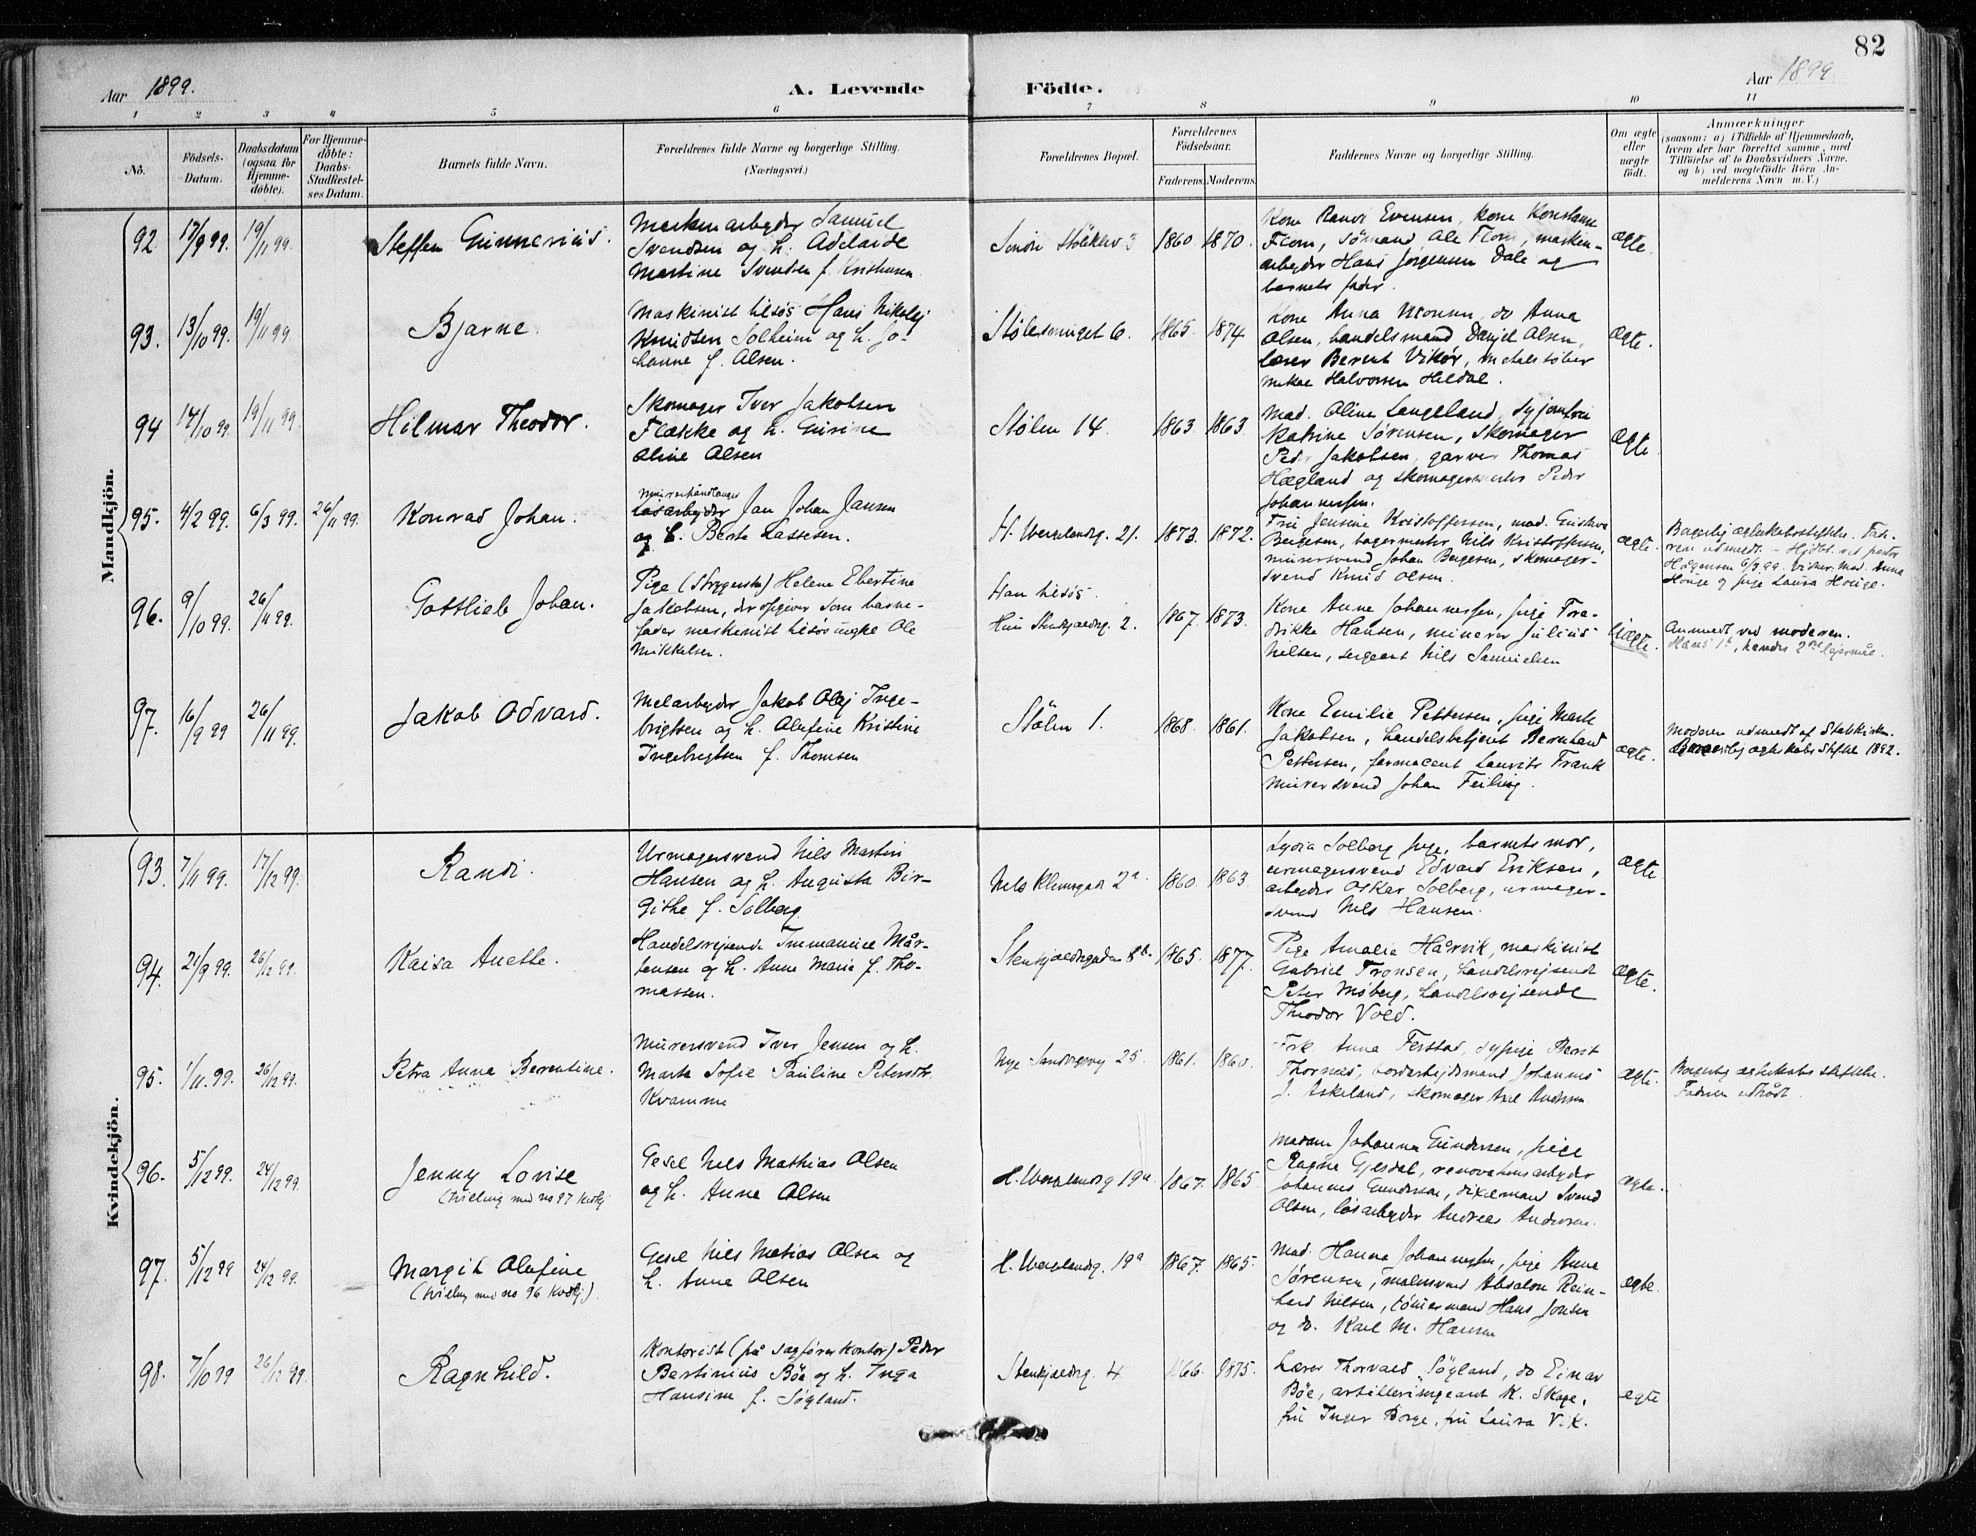 82
Aar 1899.
A. Levende Födte.
Aar 1899
1 2 3 4 5 6 7 8 9 10 11
No.
Födsels-Datum.
Daabsdatum (ogsaa for Hjemme-döbte).
For Hjemme-döbte: Daabs-Stadfæstel-ses Datum.
Barnets fulde Navn.
Forældrenes fulde Navne og borgerlige Stilling. (Næringsvei.)
Forældrenes Bopæl.
Forældrenes Födselsaar.
Faderens. Moderens.
Faddernes Navne og borgerlige Stilling.
Om ægte eller uægte födt.
Anmærkninger
(saasom: a) i Tilfælde af Hjemmedaab, hvem der har forrettet samme, med Tilföielse af to Daabsvidners Navne, og b) ved uægtefödte Börn Anmelderens Navn m. V.)
Mandkjön.
92 17/9 99. 19/11 99. Steffen Gunnerius.
Samuel
Svendsen og h. Adelaide
Martine Svendsen f. Kristensen
1860 1870.
Kone Evensen, kone
Flom, sømand Ole Flom, maskin-
arbejder Hans Jørgensen Dale og
barnets fader.
ægte.
93. 13/10 99. 19/11 99. Bjarne.
Maskinist tilsøs Hans Nikolaj
Knudsen Solheim og h. Jo-
hanne f. Olsen.
6. 1865. 1874
Kone Anna do Anna
Olsen, handelsmand Daniel Olsen,
lærer Berent Vikør,
Halvorsen Hildal.
ægte.
94 14/10 99 19/11 99. Hilmar Theodor.
Skomager Iver Jakobsen
Flække og h. Gurine
Oline Olsen
Stølen 14. 1863 1863
Mad. Oline Langeland, syjomfru
Katrine Sørensen, skomager
Peder Jakobsen, garver Thomas
Hægland og skomagermester Peder
Johannessen.
ægte
95. 4/2 99. 6/3 99. 26/11 99. Konrad Johan.
Murerhåndlanger
Løsarbejder Jan Johan Jansen
og h. Berte Lassesen.
H. Wergelandsg. 21. 1873. 1872.
Fru Jensine Kristoffersen, mad. Gustava
Bergesen, bagermester Nils Kristoffersen,
murersvend Johan Bergesen, skomager-
svend Knud Olsen.
ægte.
Borgerlig ægteskabsstiftelse. Fad-
eren udmeldt. - Hjdbt. ved pastor
6/3 99. Vidner: Mad. Anna
Houge og pige Laura Houge.
96. 9/10 99. 26/11 99. Gottlieb Johan.
Pige (Strygerske) Helene Ebertine
Jakobsen, der opgiver som barne-
fader maskinist tilsøs ungke Ole
Mikkelsen.
Han tilsøs.
Hun Stenkjældrg. 2. 1867. 1873.
Kone Anne Johannessen, pige Fre-
drikke Hansen, minerer Julius
Nilsen, sergeant Nils Samuelsen
Uægte.
Anmeldt ved moderen.
Hans 1ste, hendes 2det lejermål.
97. 16/9 99 26/11 99. Jakob Odvard.
Melarbejder Jakob Olaj Inge-
brigtsen og h. Olufine Kristine
Ingebrigtsen f. Thomsen
Stølen 1. 1868. 1861.
Kone Emilie Pettersen, pige Marte
Jakobsen, handelsbetjent Bernhard
Pettersen, farmaceut Laurits Frank
murersvend Johan Feiling.
ægte.
Moderen udmeldt af Statskirken.
Borgerlig ægteskabsstiftelse 1892.
Kvindekjön.
93. 7/11 99. 17/12 99. Randi.
Urmagersvend Nils Martin
Hansen og h. Augusta Bir-
githe f. Solberg
Nils Klimsgade 2a. 1860. 1863.
Lydia Solberg pige, barnets mor,
urmagersvend Edvard Eriksen,
arbejder Oskar Solberg, urmager-
svend Nils Hansen.
ægte
94. 21/9 99. 26/12 99. Kaisa Anette.
Handelsrejsende Immanuel Mår-
tensen og h. Anne Marie f. Tho-
massen.
Stenkjældergaden 8b. 1865. 1877.
Pige Amalia Hårvik, maskinist
Gabriel Tronsen, handelsrejsende
Peter Moberg, handelsrejsende
Theodor Vold.
ægte.
95. 1/11 99. 26/12 99. Petra Anna Berentine.
Murersvend Iver Jensen og h.
Marta Sofie Pauline Petersdtr.
Kvamme
Nye Sandvigsvej 25. 1861. 1860.
Frk Anna sypige Berit
Thornes, bordarbejdsmand Johannes
J. Askeland, skomager Axel Andersen
ægte.
Borgerlig ægteskabsstiftelse.
Faderen udtrådt.
96. 5/12 99. 24/12 99. Jenny Lovise
(tvilling med no 97 Kvdkj.)
Gesel Nils Mathias Olsen
og h. Anne Olsen
H. Wergelandsg 19a 1867. 1865.
Madam Johanna Gundersen, pige
Ragna Gjesdal, renovationsarbejder
Johannes Gundersen, dixelmand Svend
Olsen, løsarbejder Andreas Andersen.
ægte.
97. 5/12 99 24/12 99. Margit Olufine
(tvilling med no 96 Kvdkj.).
Gesel Nils Matias Olsen og
h. Anne Olsen
H. Wergelandsg. 19a 1867. 1865.
Mad. Hanna Johannessen, pige Anna
Sørensen, malersvend Absalon Rein-
hard Nilsen, tømmermand Hans Jonsen
og do. Karl M. Hansen
ægte.
98. 7/10 99 26/12 99. Ragnhild.
Kontorist (på sagførerkontor) Peder
Bertinius Bøe og h. Inga
Hansine f. Søyland.
Stenkjældrg. 4 1866. 1875.
Lærer Thorvald Søyland, do Einar
Bøe, artillerisergeant K. Skage,
fru Inger Borge, fru Laura V.K.
ægte